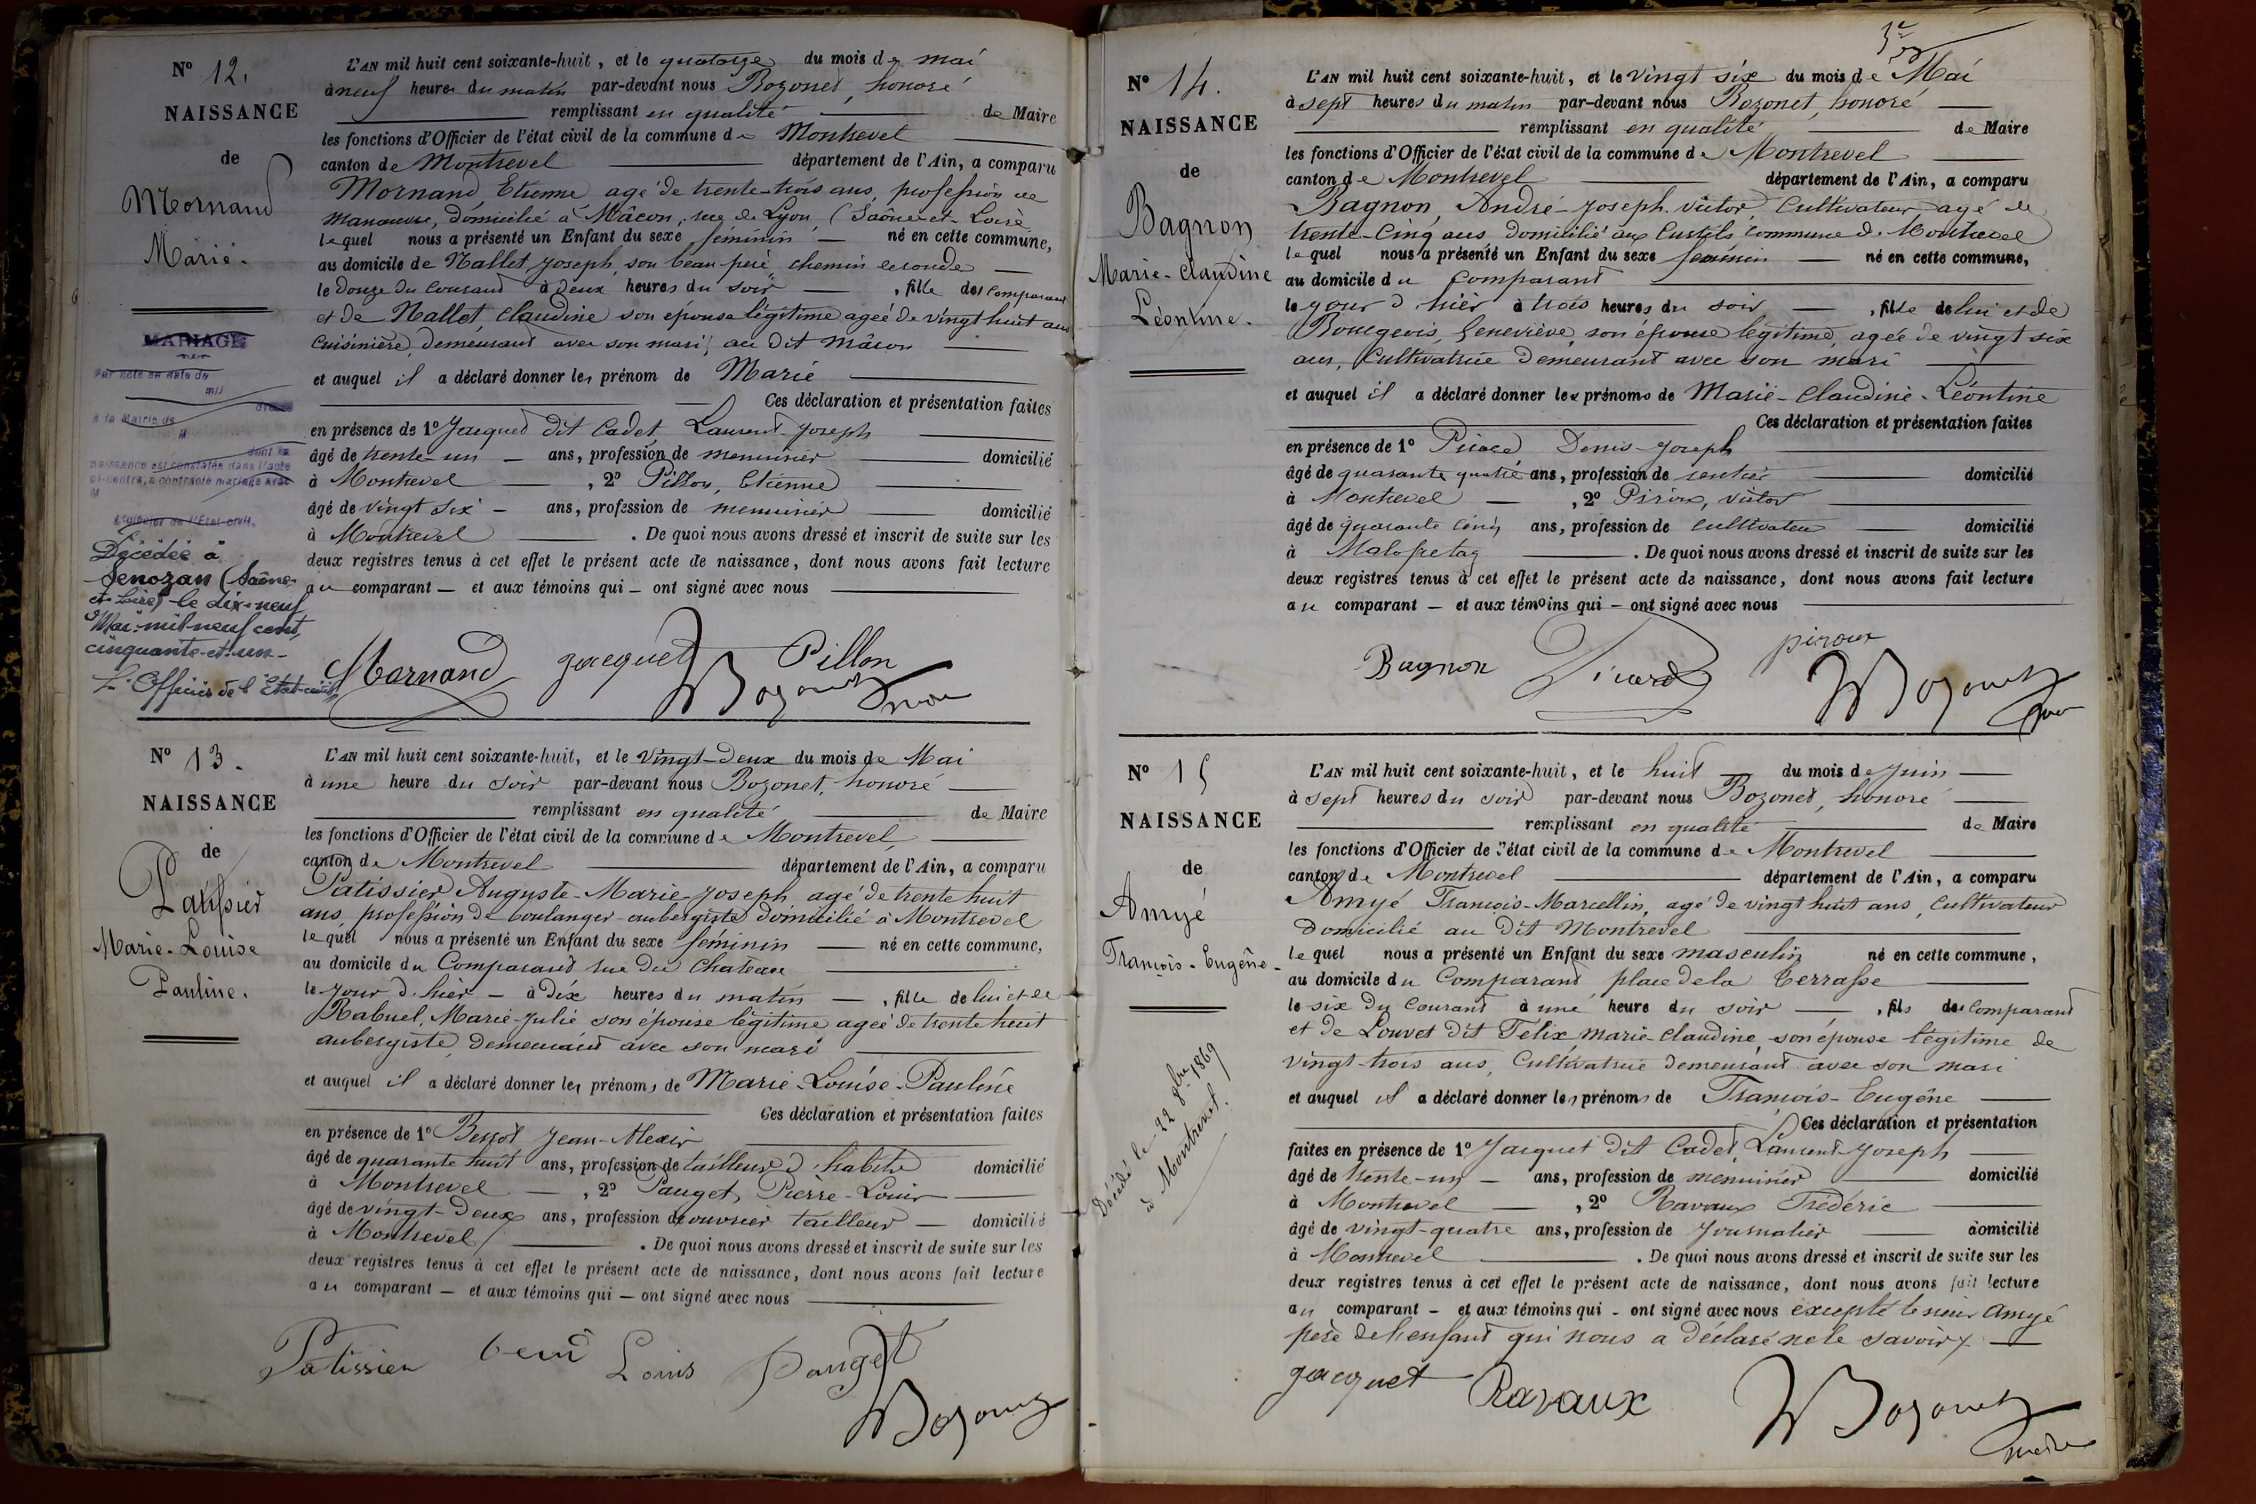 N° 12.
NAISSANCE
de
Mornand
Marie.
MARIAGE
Par acte en date du
mil
à la Mairie de
M
dont la
naissance est constatée dans l'acte
ci-contre, a contracté mariage avec
M
L'Officier de l'État civil,
Décédée à
Senozan (Saône-
et-Loire) le dix-neuf
Mai mil neuf cent
cinquante-et-un-
L'Officier de l'Etat-civil
L'AN mil huit cent soixante-huit, et le quatorze du mois de mai
à neuf heures du matin par-devant nous Bozonet, honoré
remplissant en qualité de Maire
les fonctions d'Officier de l'état civil de la commune de Montrevel
canton de Montrevel département de l'Ain, a comparu
Mornand, Etienne, agé de trente-trois ans, profession de
manœuvre, domicilié à Mâcon, rue de Lyon, (Saône-et-Loire
lequel nous a présenté un Enfant du sexe féminin né en cette commune,
au domicile de Nallet Joseph, son beau-père, chemin de ronde
le douze du courant à deux heures du soir, fille du comparant
et de Nallet, Claudine son épouse légitime ageé de vingt huit ans
Cuisinière, demeurant avec son mari, au dit Mâcon
et auquel il a déclaré donner les prénom de Marie
Ces déclaration et présentation faites
en présence de 1° Jacquet dit Cadet, Laurent-Joseph
âgé de trente-un ans, profession de menuisier domicilié
à Montrevel, 2° Pillon, Etienne
âgé de vingt six ans, profession de menuisier domicilié
à Montrevel. De quoi nous avons dressé et inscrit de suite sur les
deux registres tenus à cet effet le présent acte de naissance, dont nous avons fait lecture
au comparant — et aux témoins qui — ont signé avec nous
Mornand Jacquet Pillon
Bozonet
maire
N° 13.
NAISSANCE
de
Patissier
Marie-Louise
Pauline.
L'AN mil huit cent soixante-huit, et le vingt-deux du mois de Mai
à une heure du soir par-devant nous Bozonet, honoré
remplissant en qualité de Maire
les fonctions d'Officier de l'état civil de la commune de Montrevel,
canton de Montrevel département de l'Ain, a comparu
Patissier Auguste-Marie-Joseph, agé de trente huit
ans profession de boulanger-aubergiste domicilié à Montrevel
lequel nous a présenté un Enfant du sexe féminin né en cette commune,
au domicile du Comparant rue du Chateau
le jour d'hier à dix heures du matin, fille de lui et de
Rabuel, Marie-Julie son épouse légitime ageé de trente huit
aubergiste, demeurant avec son mari
et auquel il a déclaré donner les prénoms de Marie-Louise-Pauline
Ces déclaration et présentation faites
en présence de 1° Jean-Alexis
âgé de quarante huit ans, profession de tailleur d'habits domicilié
à Montrevel, 2° Pauget, Pierre-Louis
âgé de vingt-deux ans, profession de ouvrier tailleur domicilié
à Montrevel. De quoi nous avons dressé et inscrit de suite sur les
deux registres tenus à cet effet le présent acte de naissance, dont nous avons fait lecture
au comparant — et aux témoins qui — ont signé avec nous
Patissier Louis Pauget
Bozonet
N° 14.
NAISSANCE
de
Bagnon
Marie-Claudine
Léontine.
L'AN mil huit cent soixante-huit, et le vingt six du mois de Mai
à sept heures du matin par-devant nous Bozonet, honoré
remplissant en qualité de Maire
les fonctions d'Officier de l'état civil de la commune de Montrevel
canton de Montrevel département de l'Ain, a comparu
Bagnon, André-Joseph-Victor, Cultivateur, agé de
trente-cinq ans domicilié aux commune de Montrevel
lequel nous a présenté un Enfant du sexe féminin né en cette commune,
au domicile du Comparant
le jour d'hier à trois heures du soir, fille de lui et de
Bourgeois, Geneviève, son épouse légitime, agée de vingt six
ans, Cultivatrice demeurant avec son mari
et auquel il a déclaré donner les prénoms de Marie-Claudine-Léontine
Ces déclaration et présentation faites
en présence de 1° Denis-Joseph
âgé de quarante quatre ans, profession de rentier domicilié
à Montrevel, 2° Piroux, Victor
âgé de quarante cinq ans, profession de cultivateur domicilié
à Malafretaz. De quoi nous avons dressé et inscrit de suite sur les
deux registres tenus à cet effet le présent acte de naissance, dont nous avons fait lecture
au comparant — et aux témoins qui — ont signé avec nous
Bagnon Picard piroux
Bozonet
N° 15
NAISSANCE
de
Amyé
François-Eugène-
Décédé le 22 8bre 1869
à Montrevel.
L'AN mil huit cent soixante-huit, et le huit du mois de Juin
à sept heures du soir par-devant nous Bozonet, honoré
remplissant en qualité de Maire
les fonctions d'Officier de l'état civil de la commune de Montrevel
canton de Montrevel département de l'Ain, a comparu
Amyé François-Marcellin, agé de vingt huit ans, Cultivateur
Domicilié au dit Montrevel
lequel nous a présenté un Enfant du sexe masculin né en cette commune,
au domicile du Comparant place de la Terrasse
le six du courant à une heure du soir, fils du comparant
et de Louvet dit Félix, marie Claudine, son épouse légitime de
vingt-trois ans, Cultivatrice demeurant avec son mari
et auquel il a déclaré donner les prénoms de François-Eugène
Ces déclaration et présentation
faites en présence de 1° Jacquet dit Cadet, Laurent-Joseph
âgé de trente-un ans, profession de menuisier domicilié
à Montrevel, 2° Ravaux Frédéric
âgé de vingt-quatre ans, profession de journalier domicilié
à Montrevel. De quoi nous avons dressé et inscrit de suite sur les
deux registres tenus à cet effet le présent acte de naissance, dont nous avons fait lecture
au comparant — et aux témoins qui — ont signé avec nous excepté le sieur Amyé
père de l'enfant qui nous a déclaré ne le savoir
Jacquet Ravaux Bozonet
maire